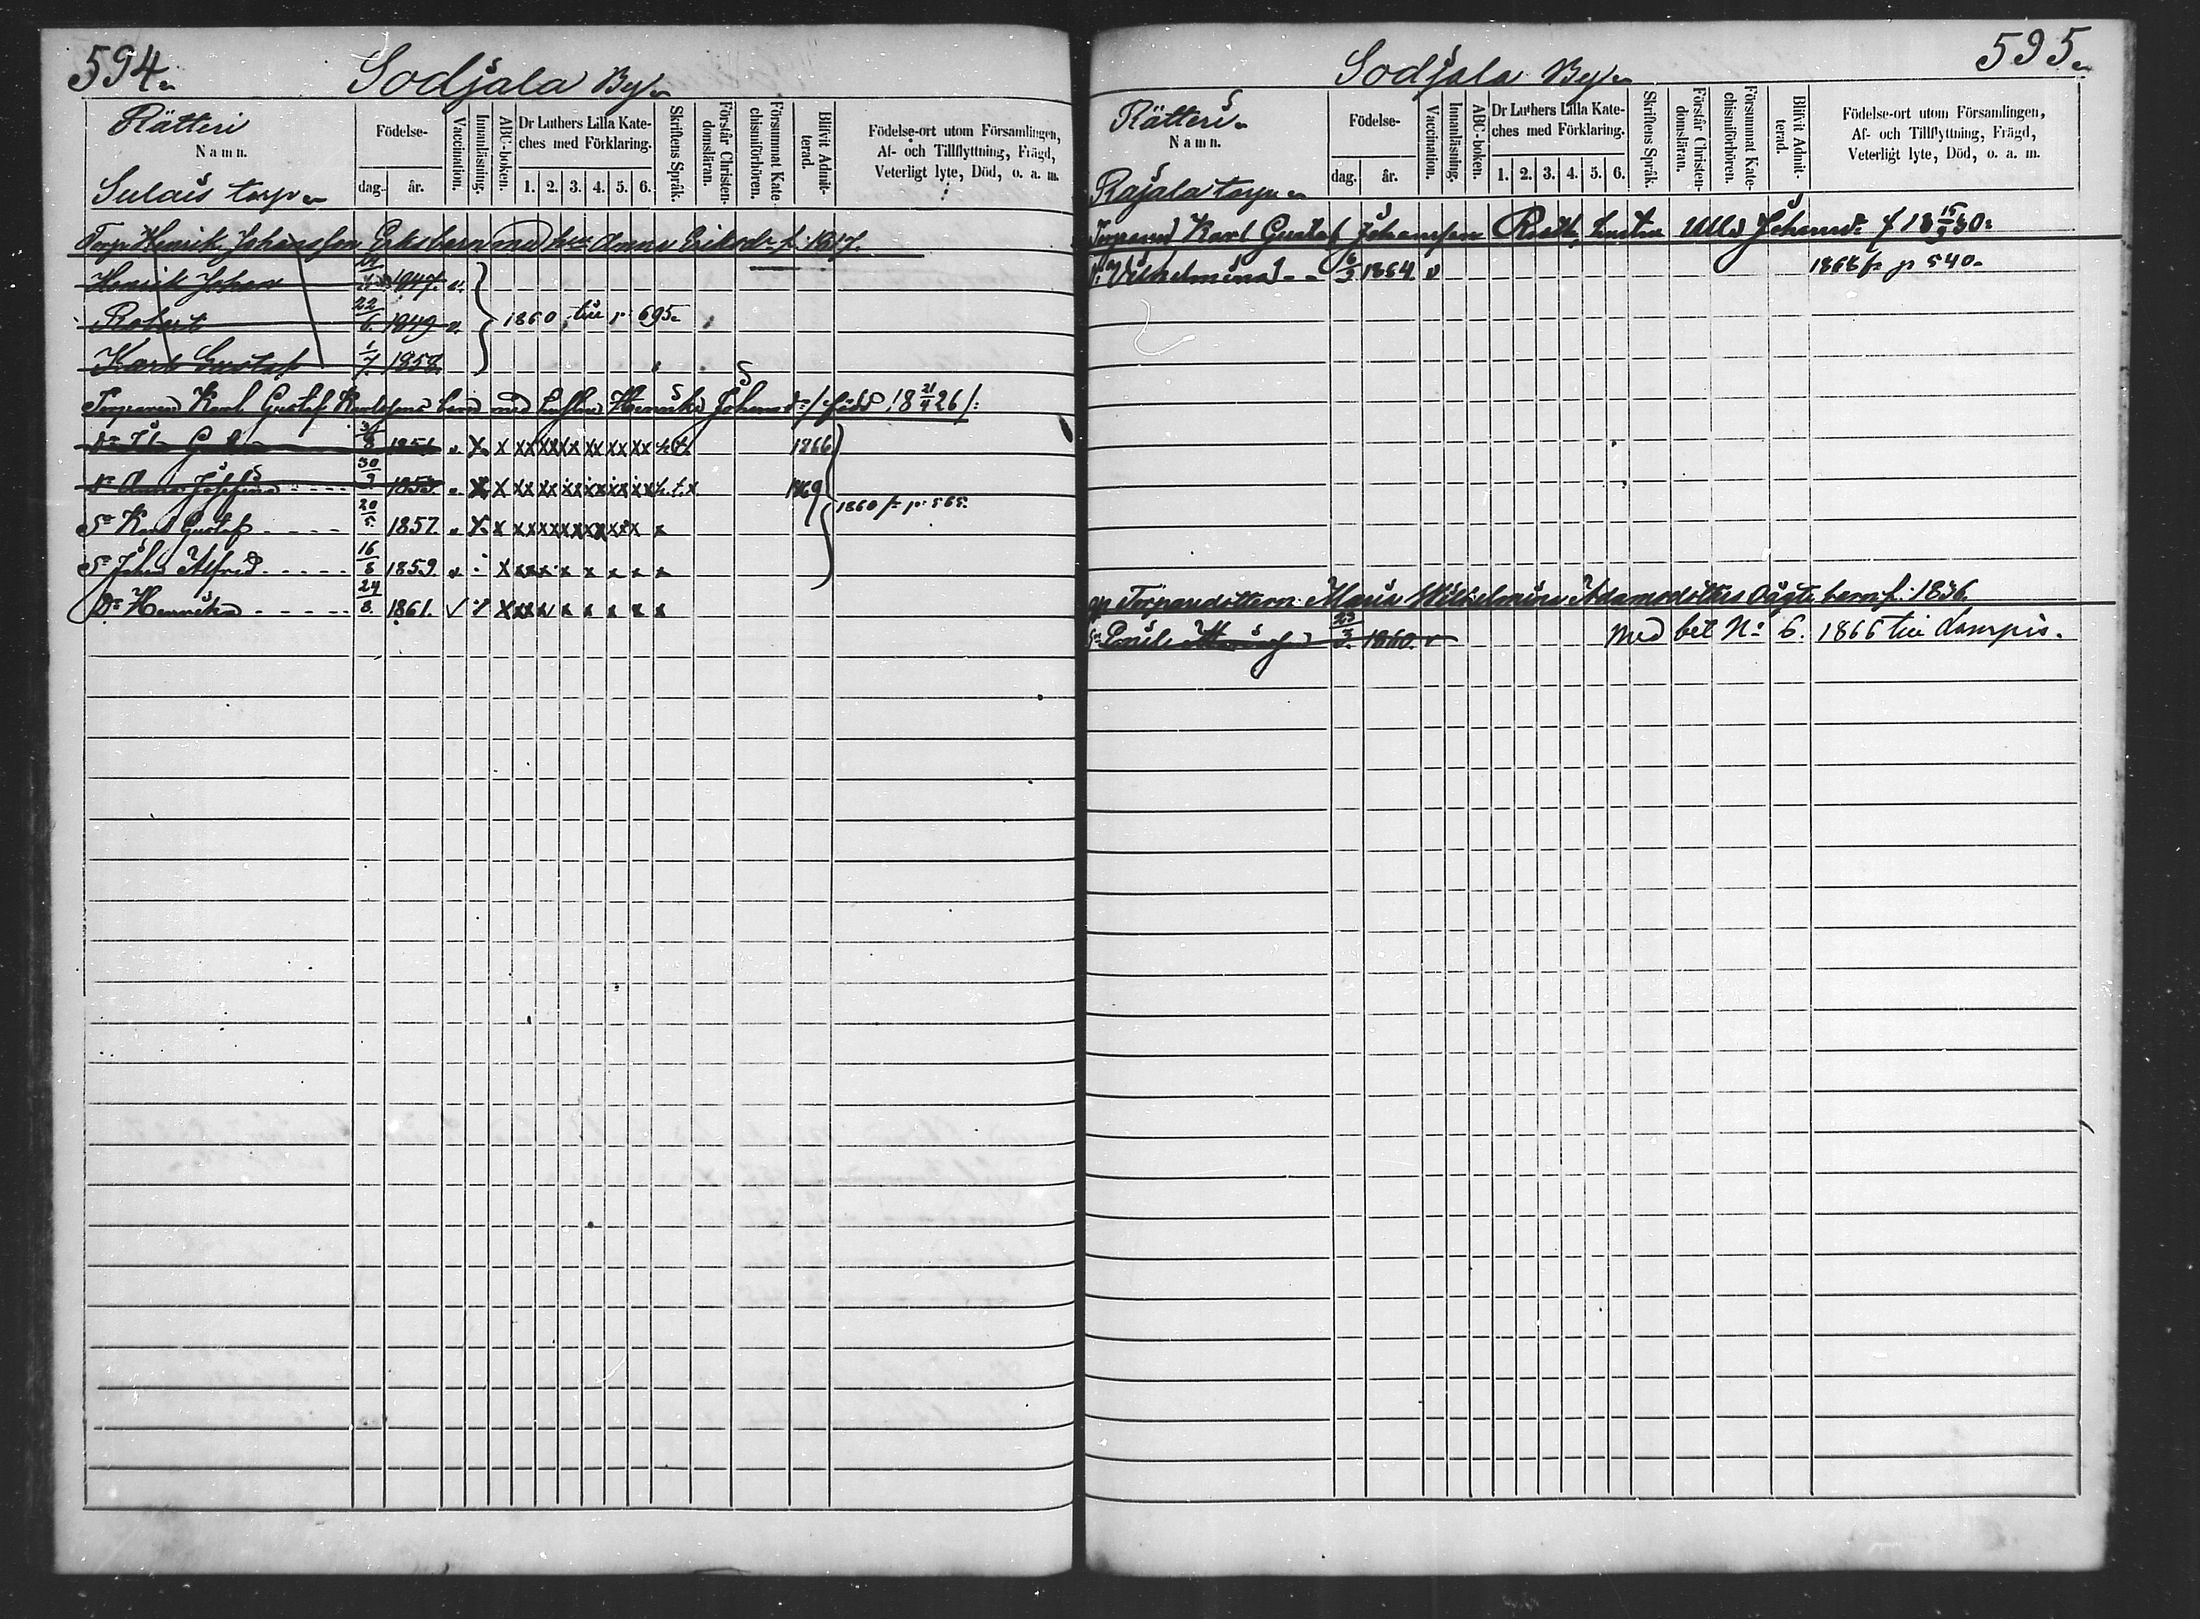 594.
Sodjala By.
Rätteri
Namn.
Födelse-
dag. år.
Vaccination.
Innanläsning.
ABC-boken.
Dr Luthers Lilla Kate-
ches med Förklaring.
1. 2. 3. 4. 5. 6.
Skriftens Språk.
Förstår Christen-
domsläran.
Försummat Kate-
chismiförhören.
Blifvit Admit-
terad.
Födelse-ort utom Församlingen,
Af- och Tillflyttning, Frägd,
Veterligt lyte, Död, o. a. m.
Sulais torp
Torp. Henrik Johansson barn med Anna Eriksdr f. 1817.
Henrik Johan 1847. v.
Robert 22/6 1849 v. 1860 till p 695.
Karl Gustaf 1/7 1858.
Torparen Karl Gustaf Karlssons barn med hustru Henrika Johansdr /: född 18 21/4 26 /:
Dr Ida 1851. v x x xx xx x xx xx xx 1866
Dr Anna Josefina 30/9 1853. v x x xx xx xx xx xx xx x 1869
1860 fr p 565.
Sn Karl Gustaf 20/5 1857. v x x xx xx xx xx xx x x
Sn Johan Alfred 16/8 1859. v x x x x x x x x
Dr Henrika 24/8 1861. v x x x x x x x
595.
Sodjala By.
Rätteri
Namn.
Födelse-
dag. år.
Vaccination.
Innanläsning.
ABC-boken.
Dr Luthers Lilla Kate-
ches med Förklaring.
1. 2. 3. 4. 5. 6.
Skriftens Språk.
Förstår Christen-
domsläran.
Försummat Kate-
chismiförhören.
Blifvit Admit-
terad.
Födelse-ort utom Församlingen,
Af- och Tillflyttning, Frägd,
Veterligt lyte, Död, o. a. m.
Rajala torp
Torparen Karl Gustaf Johansson hustru Ulla Johansdr f 18 15/9 30.
Dr Vilhelmina 16/3 1864 v 1868 fr p 540.
Torparedottern Maria Wilhelmina Adamsdotters oägta barn f. 1836.
Sn Emil 23/3 1860. v Med bet No 6. 1866 till Lampis.